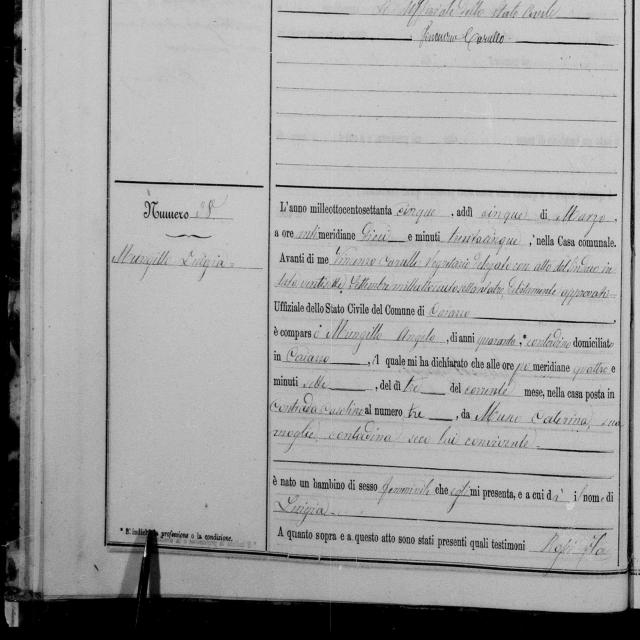 dello Stato Civile
Carullo
Numero
Luigia
L'anno milleottocentosettanta cinque, addì cinque di Marzo,
a ore antimeridiane Dieci e minuti trentacinque, nella Casa comunale.
Avanti di me Segretario delegato con atto del Sindaco in
data venti Settembre milleottocentosettantaquattro, debitamente approvato
Uffiziale dello Stato Civile del Comune di
è comparso Angelo, di anni quaranta, * contadino domiciliato
in , il quale mi ha dichiarato che alle ore pomeridiane quattro e
minuti sette, del dì tre del corrente mese, nella casa posta in
contrada al numero tre, da Caterina sua
moglie, contadina seco lui convivente
è nato un bambino di sesso femminile che egli mi presenta, e a cui dà il nome di
Luigia
A quanto sopra e a questo atto sono stati presenti quali testimoni
* S'indichi la professione o la condizione.